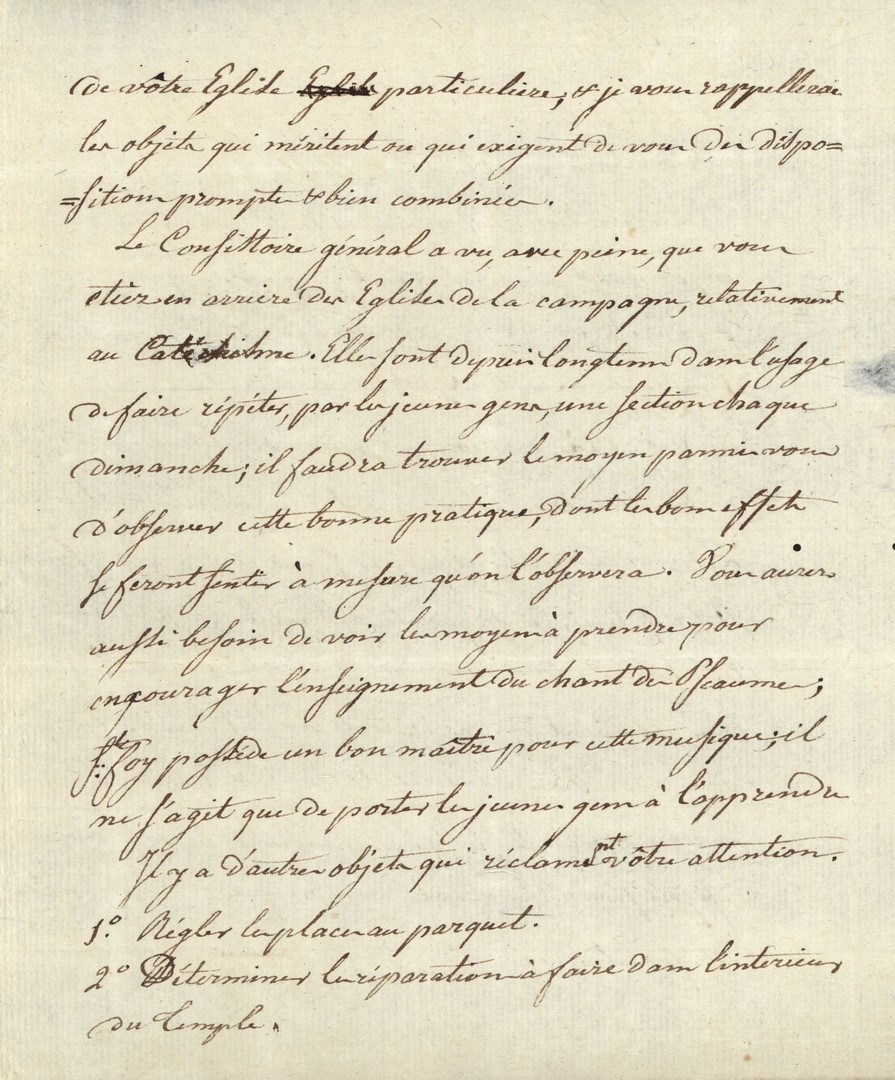 de vôtre Eglise Eglise particuliere, & je vous rappellerai
les objets qui méritent ou qui exigent de vous des dispo=
=sitions promptes & bien combinées.
Le Consistoire général a vu, avec peine, que vous
etiez en arriere des Eglises de la campagne, relativement
au Catéchisme. Elles sont depuis longtems dans l'usage
de faire répéter, par les jeunes gens, une section chaque
dimanche; il faudra trouver le moyen parmi vous
d'observer cette bonne pratique, dont les bons effets
se feront sentir à mesure qu'on l'observera. Vous aurez
aussi besoin de voir les moyens à prendre pour
encourager l'enseignement du chant des Pseaumes;
Ste Foy possède un bon maître pour cette musique; il
ne s'agit que de porter les jeunes gens à l'apprendre
Il y a d'autres objets qui réclament vôtre attention.
1.o Régler les places au parquet.
2.o Déterminer les réparations à faire dans l'interieur
du Temple.